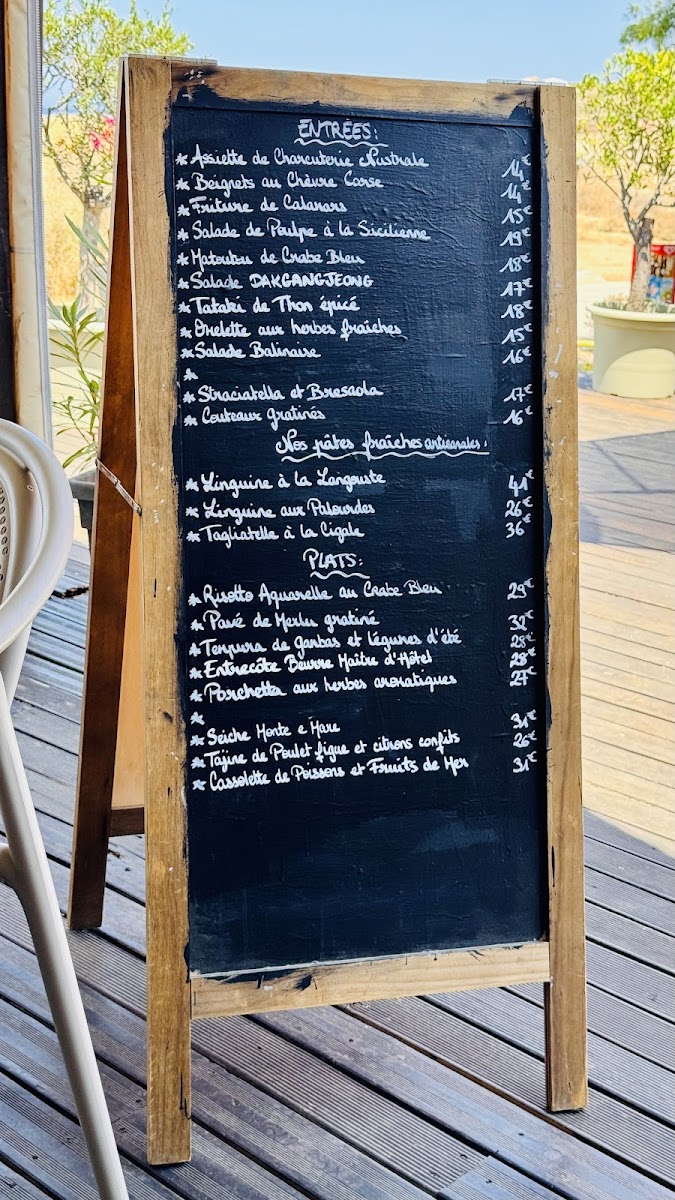 ENTRÉES:
* Assiette de Charcuterie Nustrale 14€
* Beignets au Chèvre Corse 14€
* Friture de Calamars 15€
* Salade de Poulpe à la Sicilienne 19€
* Matoutou de Crabe Bleu 18€
* Salade DAKGANGJEONG 17€
* Tataki de Thon épicé 18€
* Omelette aux herbes fraîches 15€
* Salade Balinaise 16€
*
* Straciatella et Bresaola 17€
* Couteaux gratinés 16€
Nos pâtes fraîches artisanales:
* Linguine à la Langouste 41€
* Linguine aux Palourdes 26€
* Tagliatelle à la Cigale 36€
PLATS:
* Risotto Aquarelle au Crabe Bleu 29€
* Pavé de Merlu gratiné 32€
* Tempura de Gambas et légumes d'été 28€
* Entrecôte Beurre Maître d'Hôtel 28€
* Porchetta aux herbes aromatiques 27€
*
* Seiche Monte e Mare 31€
* Tajine de Poulet figue et citrons confits 26€
* Cassolette de Poissons et Fruits de Mer 31€